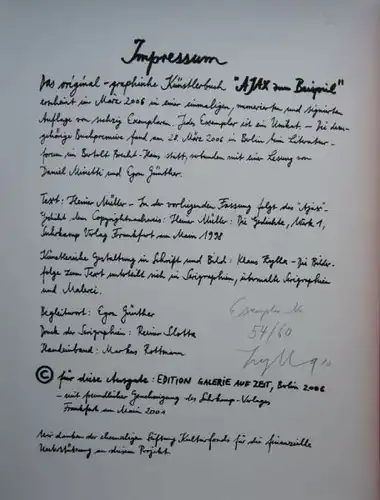 Impressum
Das original-graphische Künstlerbuch "AJAX zum Beispiel"
erscheint im März 2006 in einer einmaligen, nummerierten und signierten
Auflage von sechzig Exemplaren. Jedes Exemplar ist ein Unikat. – Die dazu-
gehörige Buchpremiere fand am 28. März 2006 in Berlin im Literatur-
forum im Bertolt Brecht-Haus statt, verbunden mit einer Lesung von
Daniel Minetti und Egon Günther.
Text: Heiner Müller – In der vorliegenden Fassung folgt das "Ajax"-
Gedicht dem Copyrightnachweis: Heiner Müller: Die Gedichte, Werk 1,
Suhrkamp Verlag Frankfurt am Main 1998
Künstlerische Gestaltung in Schrift und Bild: Klaus Zylla – Die Bilder-
folge zum Text unterteilt sich in Serigraphien, übermalte Serigraphien
und Malerei.
Begleitwort: Egon Günther
Druck der Serigraphien: Reiner Slotta
Handeinband: Markus Rottmann
Exemplar Nr.
54/60
Zylla
© für diese Ausgabe: EDITION GALERIE AUF ZEIT, Berlin 2006
– mit freundlicher Genehmigung des Suhrkamp-Verlages
Frankfurt am Main 2001
Wir danken der ehemaligen Stiftung Kulturfonds für die finanzielle
Unterstützung an diesem Projekt.